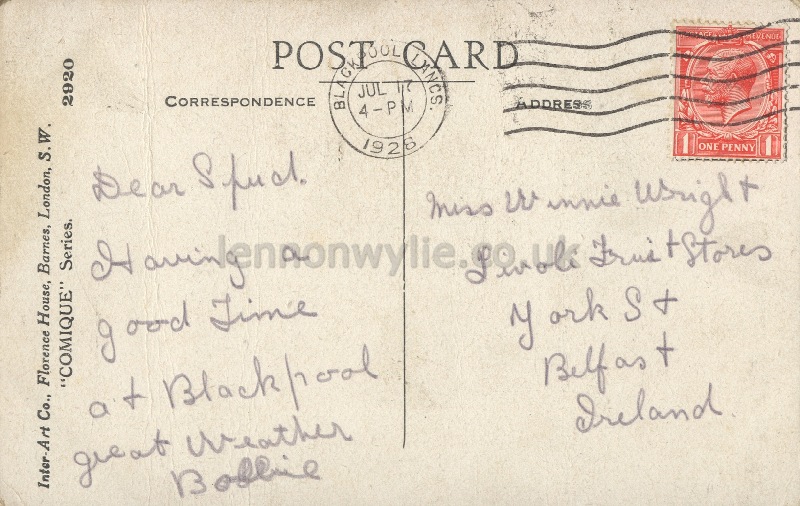 POST CARD
CORRESPONDENCE
ADDRESS
BLACKPOOL LANCS.
JUL 17
4 - PM
1926
POSTAGE REVENUE
1 ONE PENNY 1
Inter-Art Co., Florence House, Barnes, London, S.W.
"COMIQUE" Series.
2920
Dear Spud.
Having a
good Time
at Blackpool
great Weather
Bobbie
Miss Winnie Wright
Fruit Stores
York St
Belfast
Ireland.
lennonwylie.co.uk